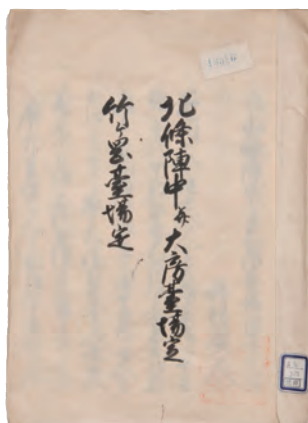 北條陣中并大房臺場定
竹ヶ岡臺場定